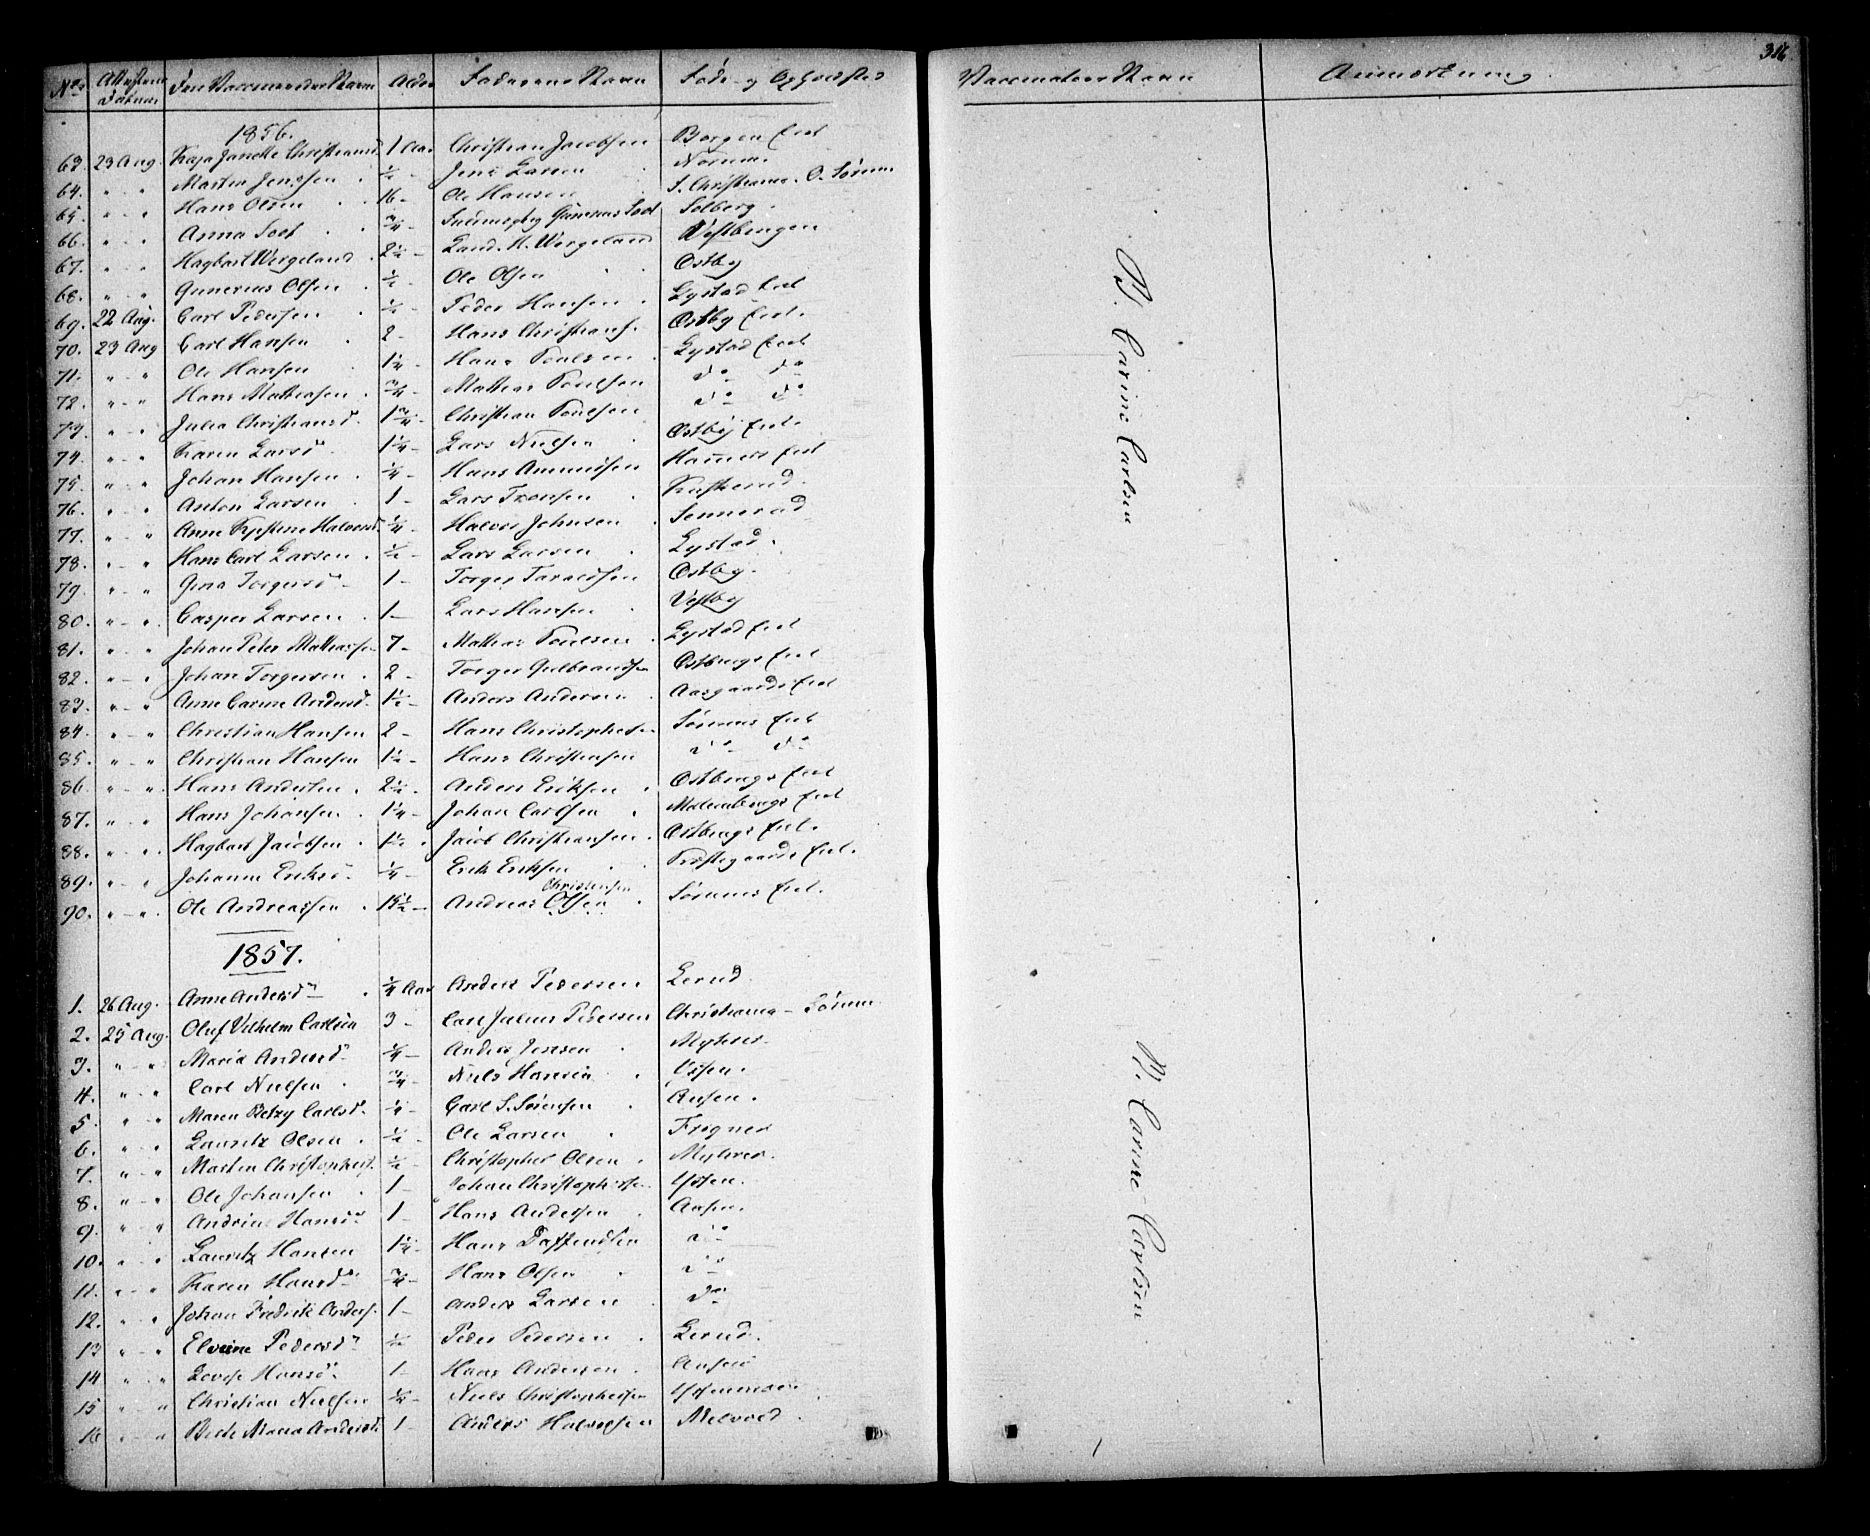 No. Attestens Datum Den Vaccineredes Navn Alder Faderens Navn Føde- og Opholdsted Vaccinateur Navn Anmærkning
316.
1856.
63. 23 Aug. Kaja Janette Christiansd. 1 Aar Christian Jacobsen Borgen Eiet
64. " - " Martin Jenssen . ½ - Jens Larsen
65. " - " Hans Olsen . 16 - Ole Hansen F. Christiania. O. Sørum
66. " - " Anna Soot . ¾ - Gunerus Soot Solberg.
67. " - " Hagbart Wergeland . 2½ - Land. H. Wergeland Vestbyengen
68. " - " Gunerius Olsen . ½ - Ole Olsen Østby
69. 22 Aug. Carl Pedersen . ½ - Peder Hansen . Lystad Eiet
70. 23 Aug Carl Hansen . 2 - Hans Christians. Østby Eiet.
71. " - " Ole Hansen 1¼ - Hans Poulsen . Lystad Eiet
72. " - " Hans Mathiasen . ¾ - Mathias Poulsen do do
73. " - " Julia Christiansd. 1¾ - Christian Poulsen do do
74. " - " Karen Larsd. 1¼ - Lars Nielsen . Østby Eiet.
75. " - " Johan Hansen . ¼ - Hans Amundsen Hammers Eiet
76. " - " Anton Larsen . 1 - Lars Tronsen .
77. " - " Anne Kristine Halvorsd. ¼ - Halvor Johnsen . Sennerud
78. " - " Hans Carl Larsen . ½ - Lars Larsen . Lystad.
79. " - " Gina Torgersd. 1 - Torger Taraldsen Østby.
80. " - " Casper Larsen . 1 - Lars Hansen . Vestby
81. " - " Johan Peter Mathiassen 7 - Mathias Poulsen . Lystad Eiet
82. " - " Johan Torgersen . 2 - Torger Gulbrandsen Østbyes Eiet
83. " - " Anne Carine Andersd. 1½ - Anders Andersen . Aasgaards Eiet
84. " - " Christian Hansen 2 - Hans Christophersen Sørums Eiet
85. " - " Christian Hansen 1½ - Hans Christensen do do
86. " - " Hans Andersen . 2½ - Anders Eriksen . Østbyes Eiet
87. " - " Hans Johansen . 1¼ - Johan Carlsen . Eiet
88. " - " Hagbart Jacobsen . 1½ . Jacob Christiansen . Østbyes Eiet.
89. " - " Johanne Eriksd. ¼ - Erik Eriksen . Præstegaards Eiet.
90. " - " Ole Andreassen . 15½ - Andreas Olsen Christensen . Sørums Eiet.
B. Carine Carlsen
1857.
1. 26 Aug. Anne Andersd. ¼ Aar Anders Pedersen Lerud
2. 25 Aug. Oluf Vilhelm Carlsen 3 - Carl Julius Pedersen Christiania - Sørum
3. " - " Maria Andersd. ¼ - Anders Jensen . Myhrer
4. " - " Carl Nielsen . ¾ - Niels Hansen .
5. " - " Maren Betzy Carlsd. ¼ - Carl S. Sørensen . Ausen.
6. " - " Lauritz Olsen . ½ - Ole Larsen . Frogner
7. " - " Martin Christophers. ½ - Christopher Olsen . Myhrer.
8. " - " Ole Johansen . 1 - Johan Christophersen
9. " - " Andrine Hansd. 1 - Hans Andersen . Ausen.
10. " - " Lauritz Hansen 1¼ - Hans do
11. " - " Karen Hansd. ¾ - Hans Olsen . do
12. " - " Johan Fredrik Anders. 1 - Anders Larsen . do
13 " - " Elvine Pedersd. ½ - Peder Pedersen . Lerud.
14 " - " Lovise Hansd. 1 - Hans Andersen . Ausen
15 " - " Christian Nielsen ¼ - Niels Christophersen
16 " - " Berte Maria Andersd. 1 - Anders Halvorsen Melvold.
B. Carine Carlsen